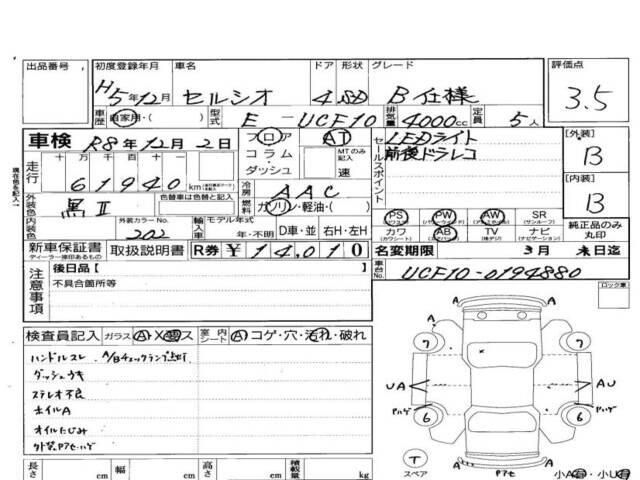 出品番号 初度登録年月 車名 ドア 形状 グレード 評価点
H5年12月 セルシオ 4 SD B仕様 3.5
車歴 自家用・( ) 型式 E-UCF10 排気量 4000cc 定員 5人
車検 R8年12月2日 フロア AT LEDライト [外装]
コラム MTのみ記入 前後ドラレコ B
走行 十 万 千 百 十 ・ダッシュ 速 セールスポイント
61940km 冷房 AAC [内装]
外装色 黒Ⅱ 色替車は色替と記入 燃料 ガソリン・軽油・( ) B
内装色 外装カラーNo. 輸入車 モデル年式 PS PW AW SR
202 年・不明 D車・並 右H・左H カワ AB TV ナビ 純正品のみ丸印
新車保証書 取扱説明書 R券 ¥14,010 名変期限 3月末日迄
ディーラー捺印あるもの
車台No. UCF10-0194880
注意事項 後日品[ ] ロック車
不具合箇所等
検査員記入 ガラス A・X・ス 室内シート A コゲ・穴・汚れ・破れ
ハンドルスレ A/Bチェックランプ点灯
ダッシュウキ
ステレオ不良
ホイルA
オイルにじみ
外装Pアセハゲ
A A
7 7
UA AU
Pハゲ 6 6 Pハゲ
T
スペア A A
Pアセ 小A有・小U有
長さ cm 幅 cm 高さ cm 積載量 kg
現在色を記入